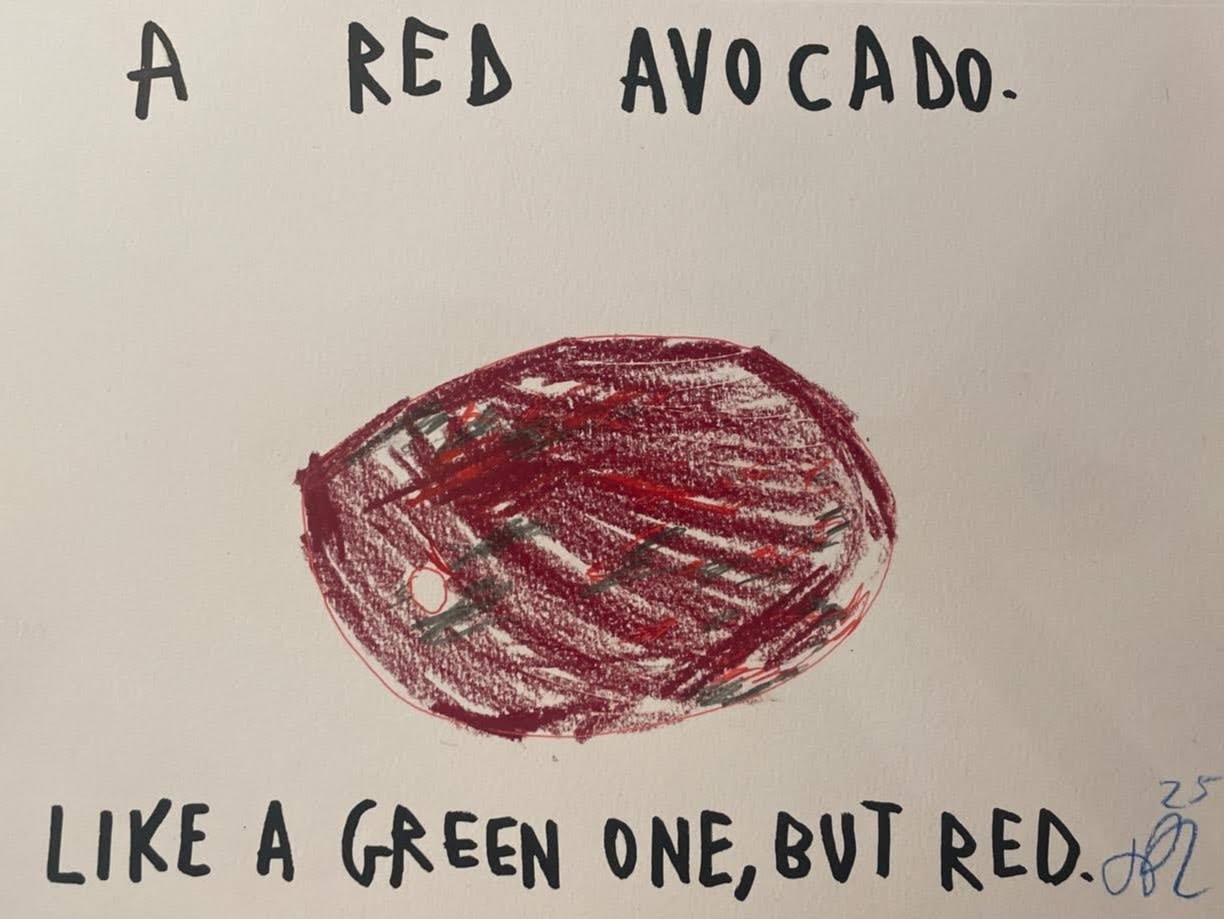 A RED AVOCADO.
LIKE A GREEN ONE, BUT RED.
25